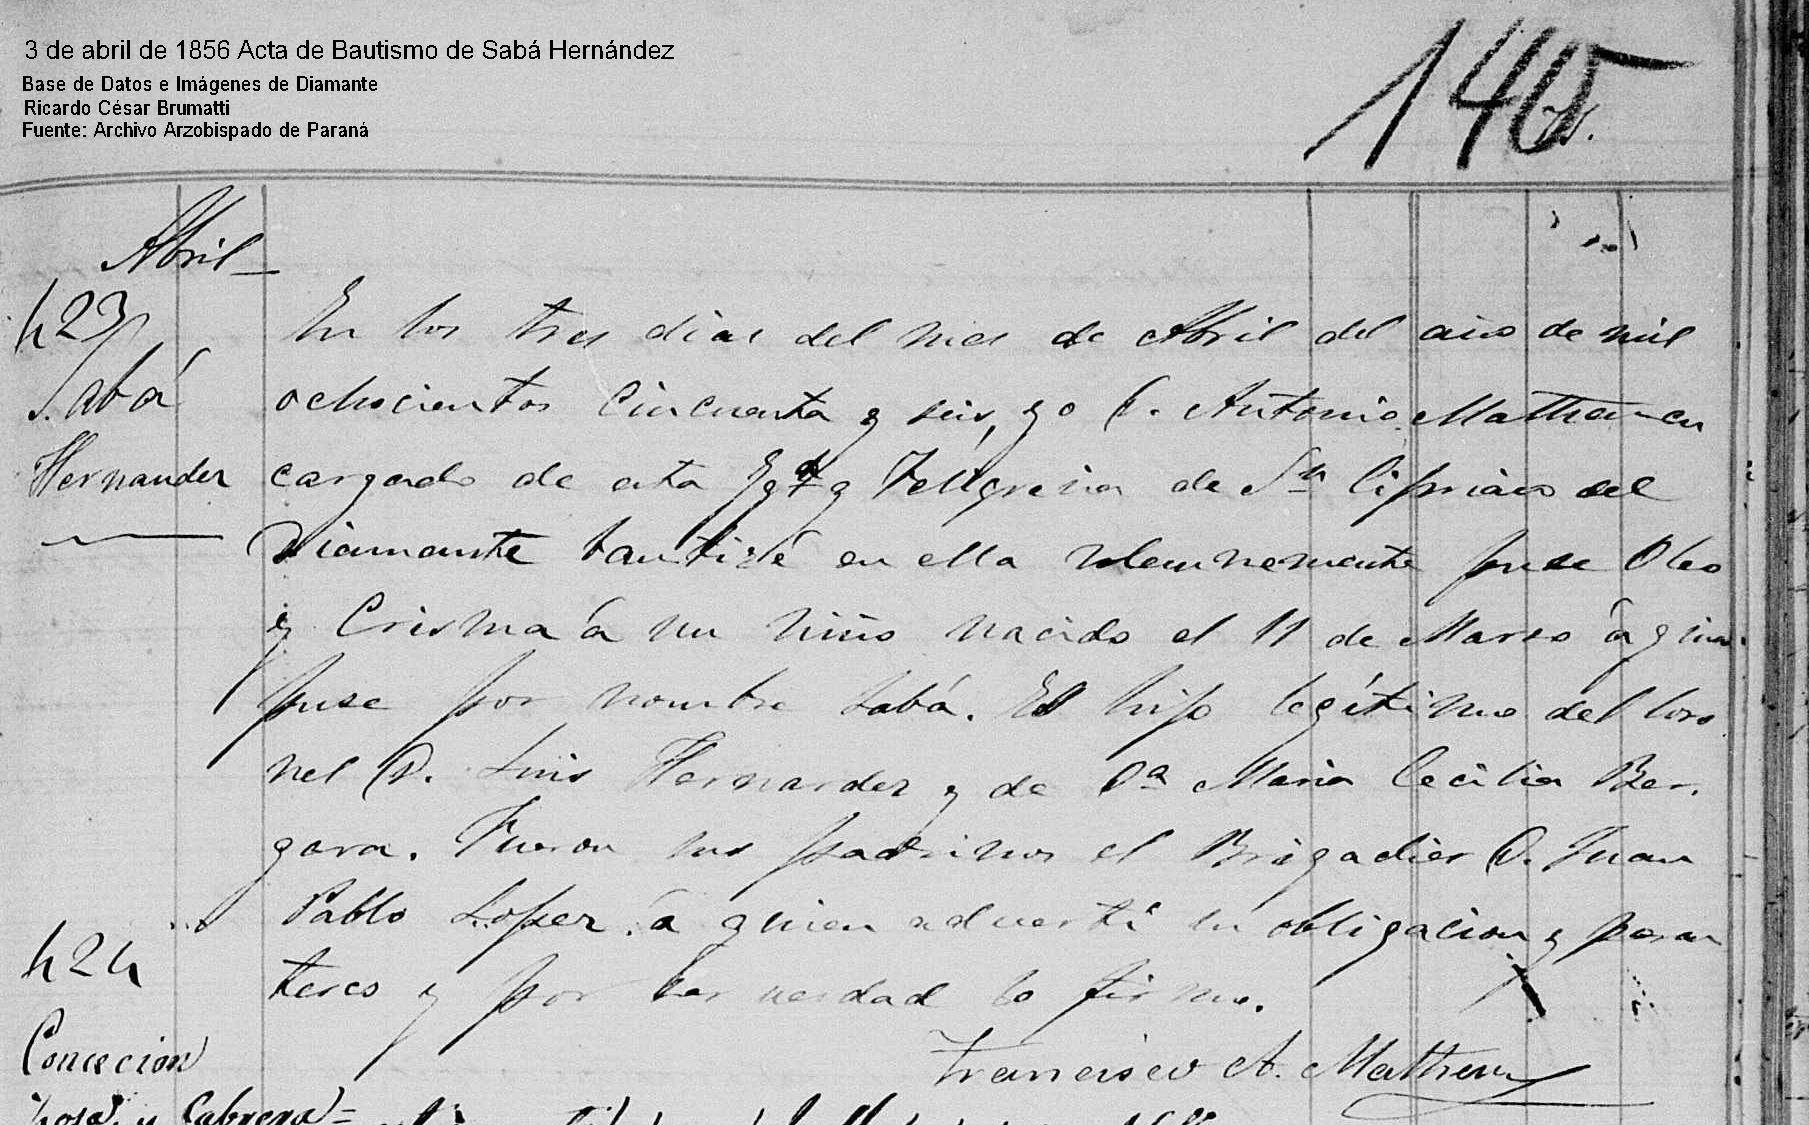 3 de abril de 1856 Acta de Bautismo de Sabá Hernández
Base de Datos e Imágenes de Diamante
Ricardo César Brumatti
Fuente: Archivo Arzobispado de Paraná
140
Abril
423
Sabá
Hernandez
En los tres dias del mes de Abril del año de mil
ochocientos cincuenta y seis, yo D. Antonio Matheu en
cargado de esta y Feligresia de Sn Cipriano del
Diamante bautizé en ella solemnemente puse Oleo
y Crisma á un niño nacido el 11 de Marzo á quien
puse por nombre Sabá. Es hijo legítimo del Coro
nel D. Luis Hernandez y de Da Maria Cecilia Ber.
gara. Fueron sus padrinos el Brigadier D. Juan
Pablo Lopez á quien advertí su obligacion y paren
tesco y por ser verdad lo firmo.
Francisco A. Matheu
424
Concecion
Rosa y Cabrera=